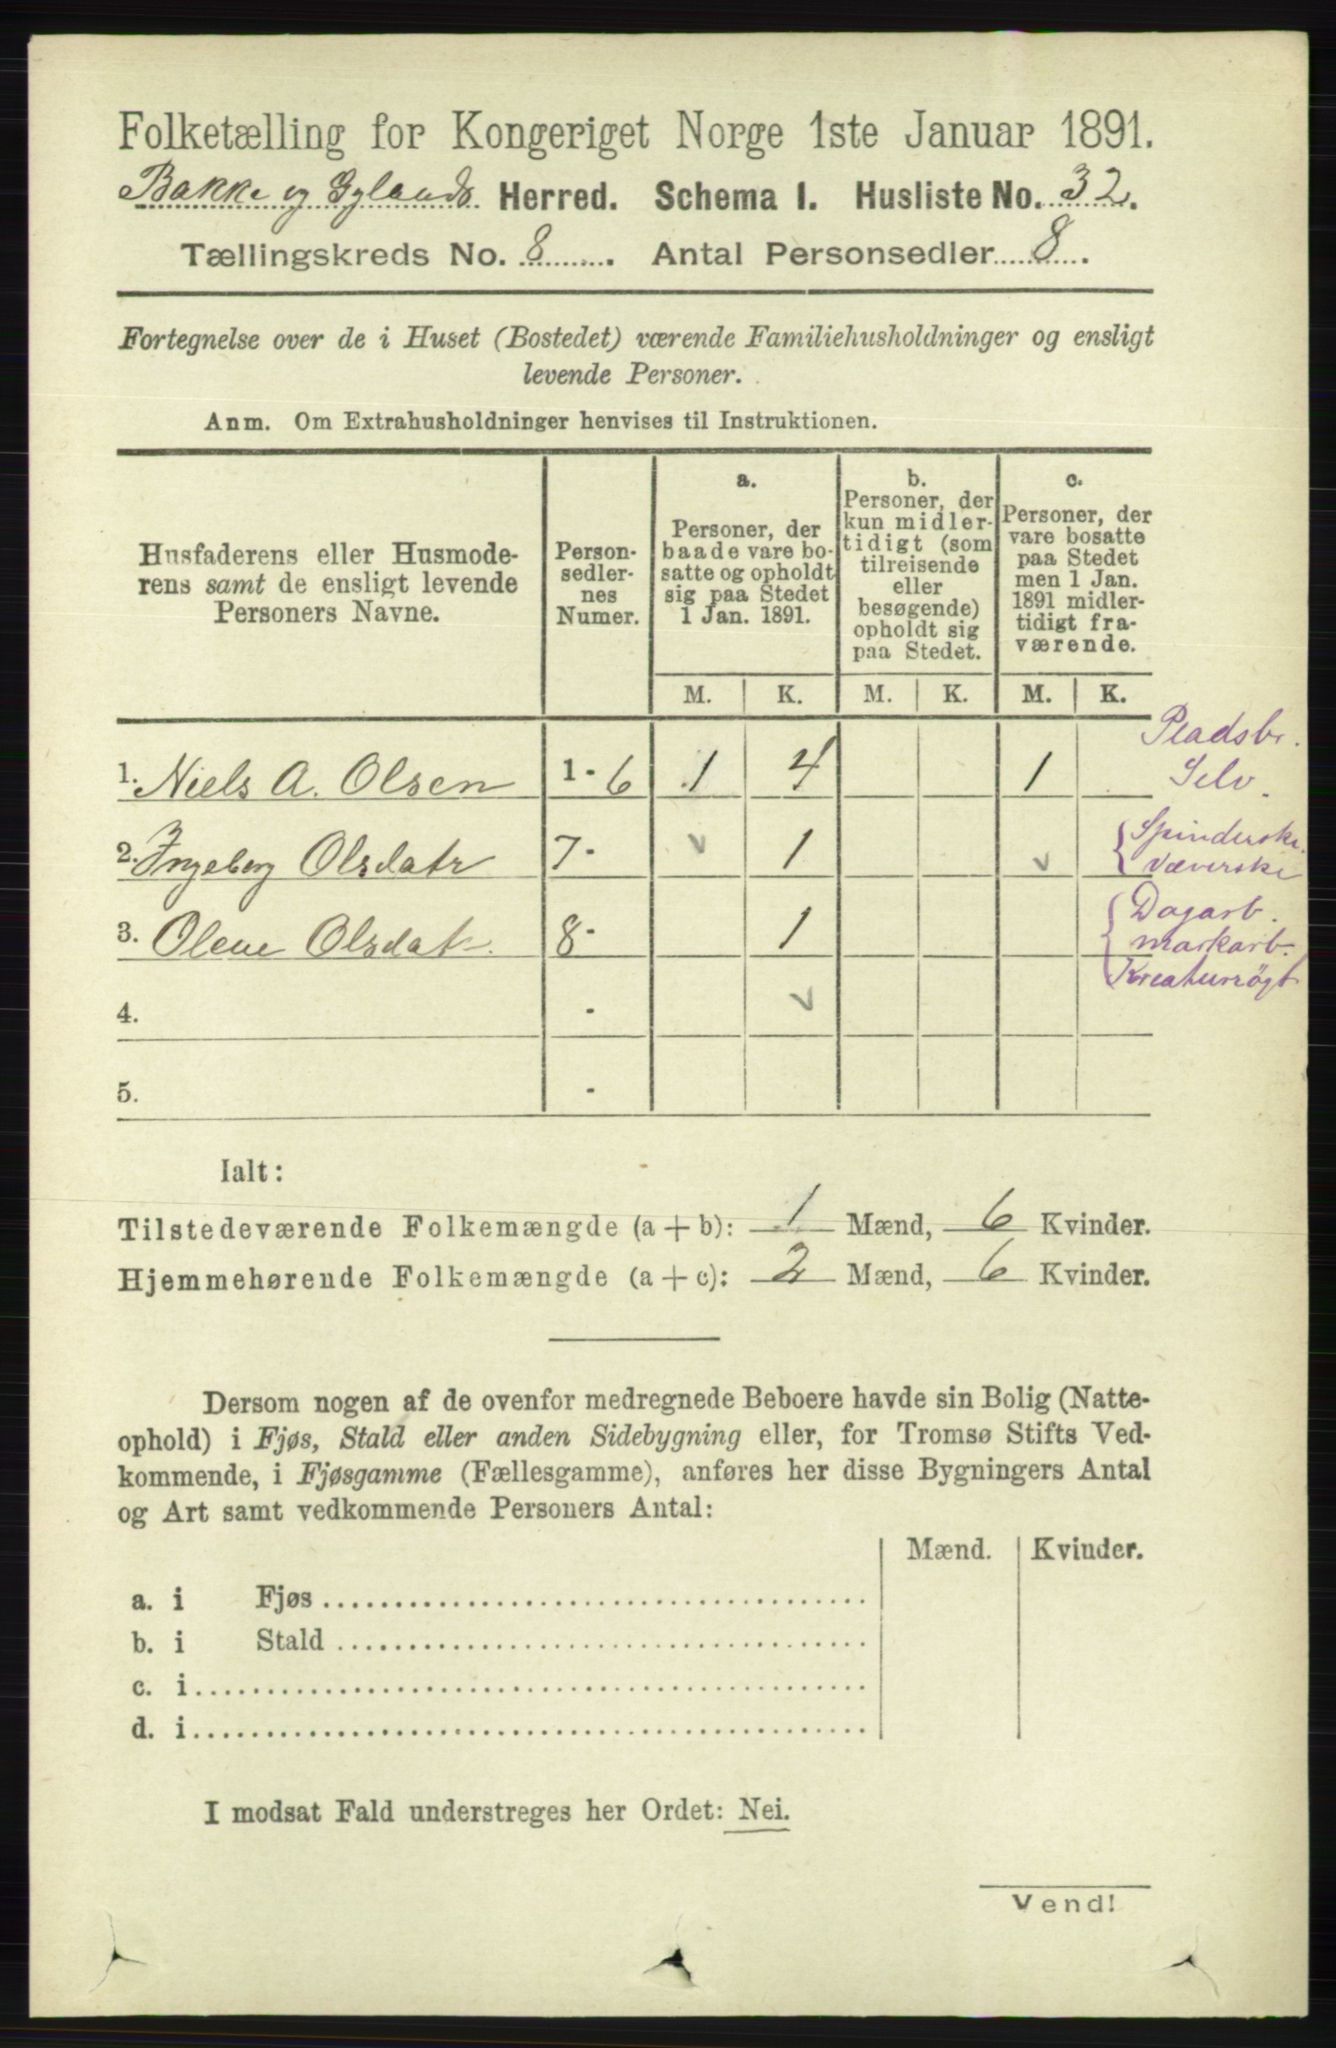 Folketælling for Kongeriget Norge 1ste Januar 1891.
Bakke og Gylands Herred. Schema I. Husliste No. 32.
Tællingskreds No. 8. Antal Personsedler 8.
Fortegnelse over de i Huset (Bostedet) værende Familiehusholdninger og ensligt
levende Personer.
Anm. Om Extrahusholdninger henvises til Instruktionen.
Husfaderens eller Husmode-
rens samt de ensligt levende
Personers Navne.
Person-
sedler-
nes
Numer.
a.
Personer, der
baade vare bo-
satte og opholdt
sig paa Stedet
1 Jan. 1891.
b.
Personer, der
kun midler-
tidigt (som
tilreisende
eller
besøgende)
opholdt sig
paa Stedet.
c.
Personer, der
vare bosatte
paa Stedet
men 1 Jan.
1891 midler-
tidigt fra-
værende.
M. K. M. K. M. K.
1. Niels A. Olsen 1 - 6 1 4 1 Pladsbr. Selv.
2. Ingeborg Olsdatr 7 - v 1 v Spinderske. Væverske
3. Olene Olsdatr. 8 - 1 Dagarb. markarb. Kreaturrøgt
4. - v
5. -
Ialt:
Tilstedeværende Folkemængde (a + b): 1 Mænd, 6 Kvinder.
Hjemmehørende Folkemængde (a + c): 2 Mænd, 6 Kvinder.
Dersom nogen af de ovenfor medregnede Beboere havde sin Bolig (Natte-
ophold) i Fjøs, Stald eller anden Sidebygning eller, for Tromsø Stifts Ved-
kommende, i Fjøsgamme (Fællesgamme), anføres her disse Bygningers Antal
og Art samt vedkommende Personers Antal:
Mænd. Kvinder.
a. i Fjøs
b. i Stald
c. i
d. i
I modsat Fald understreges her Ordet: Nei.
Vend!